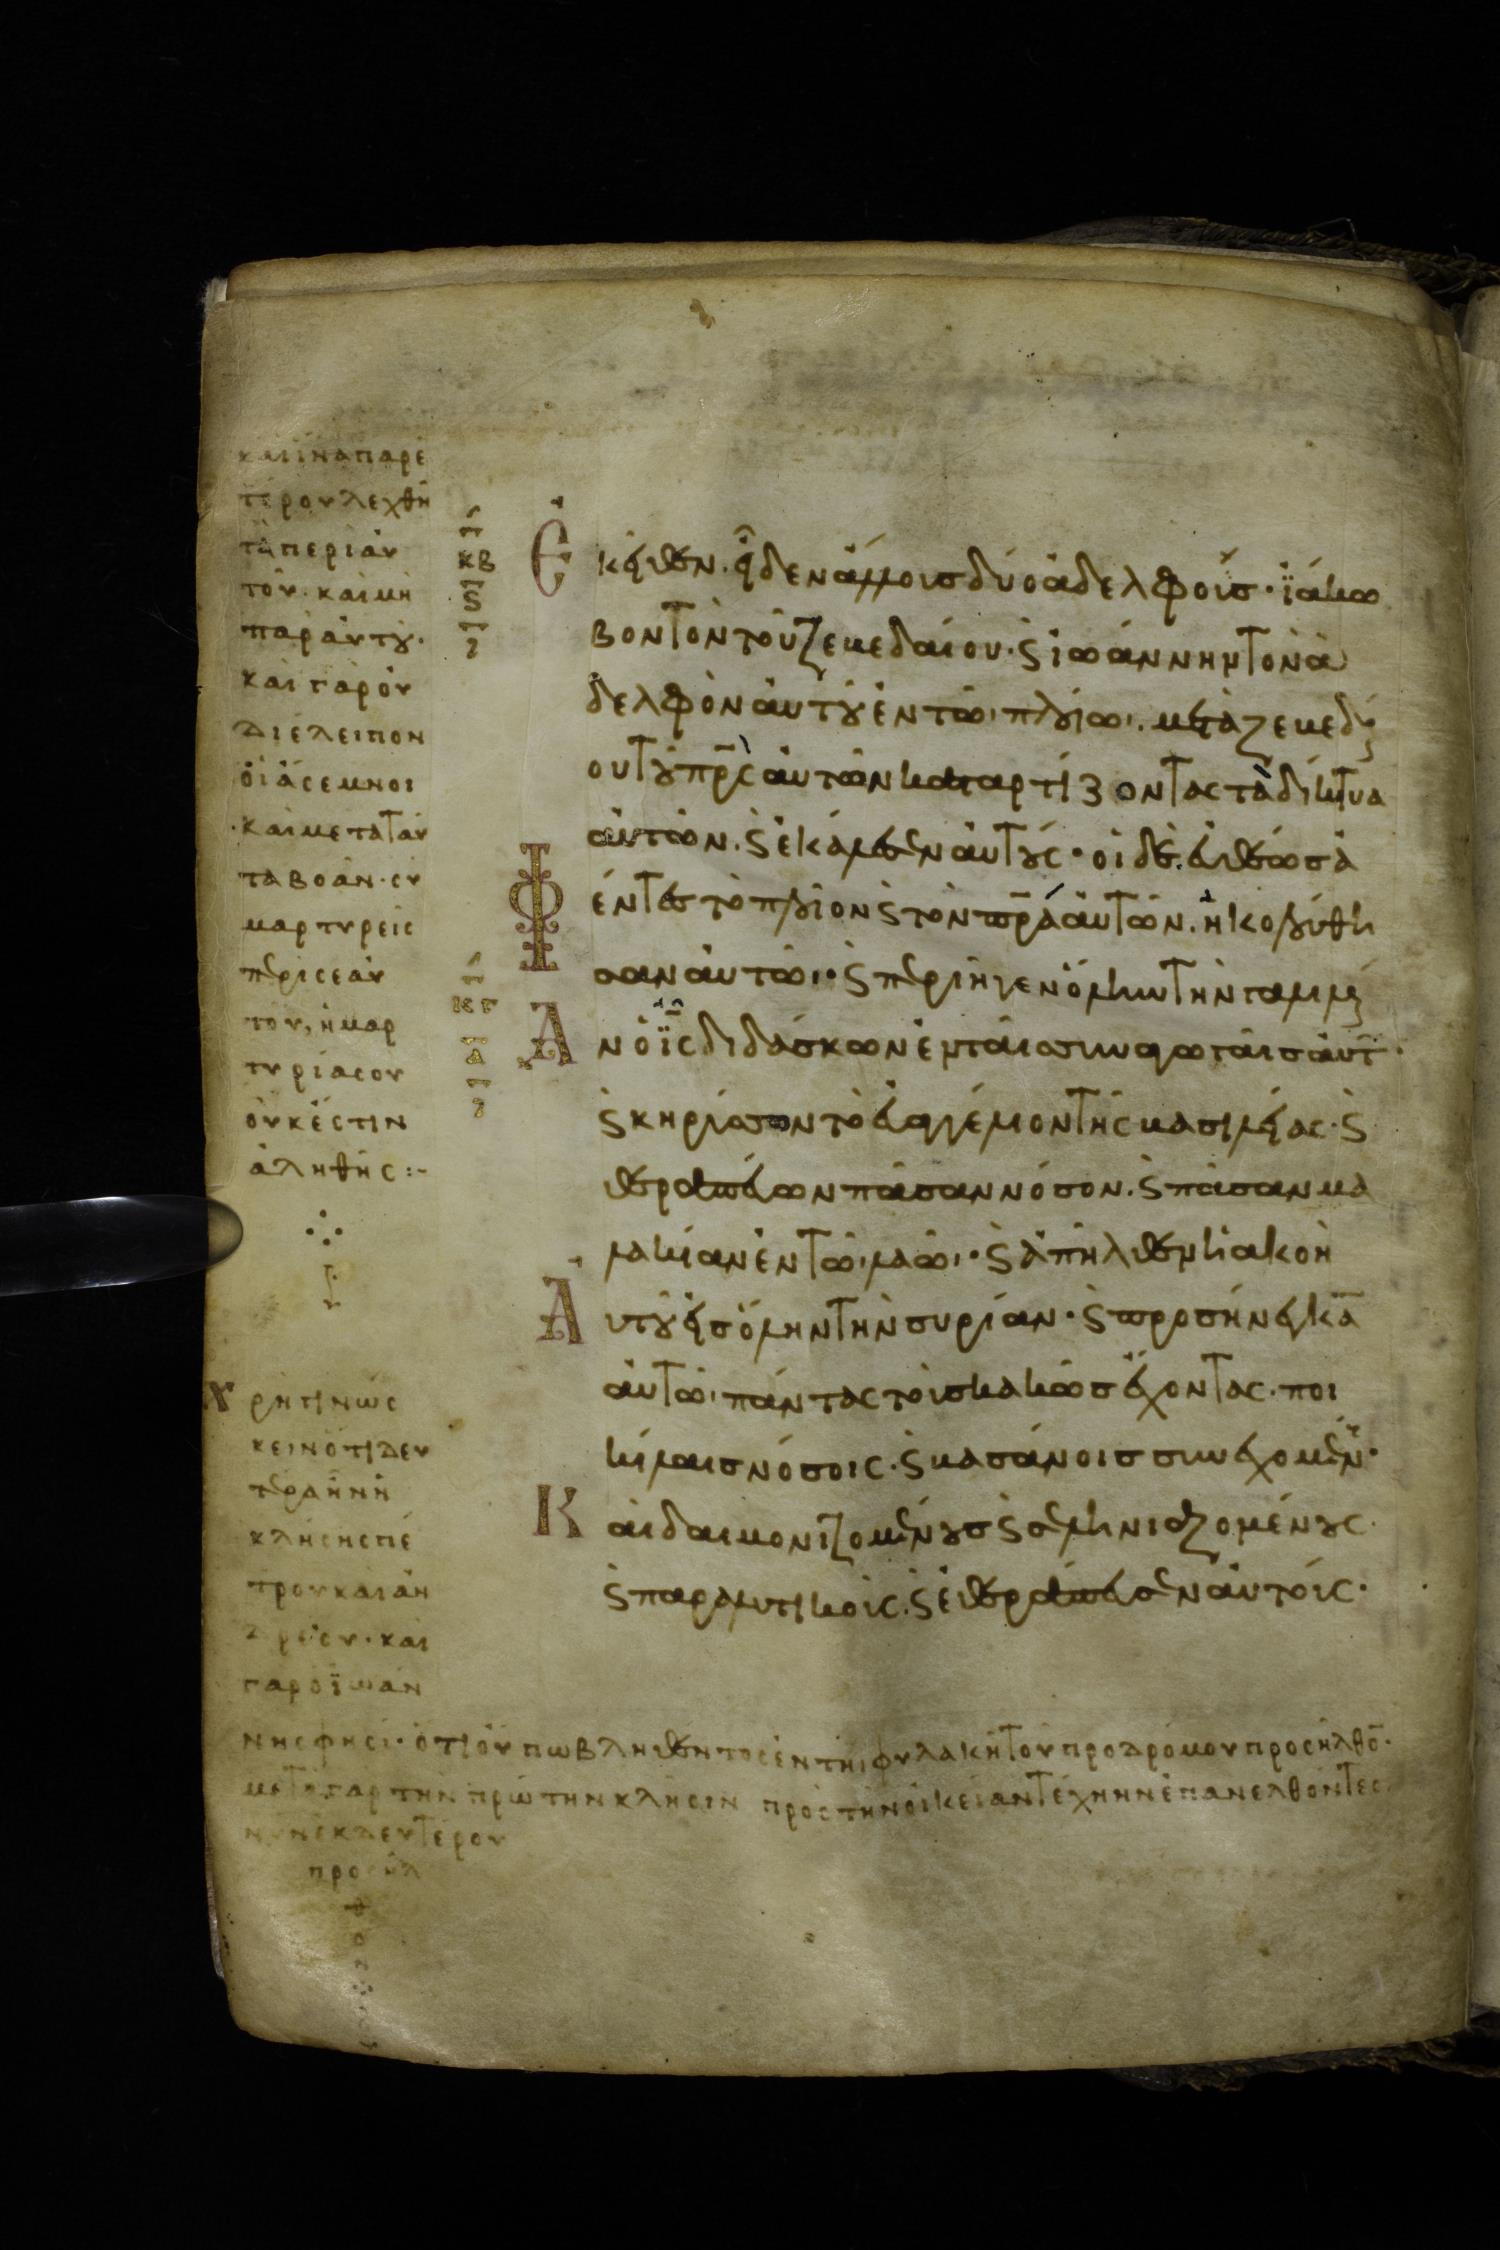 και ἵνα παρ ἑ
τέρου λεχθῆ
τὰ περὶ ἀυ
τοῦ· και μὴ
παρ ἀυτοῦ·
και γὰρ ὀυ
διέλειπον
ὁι ἀσεμνοι
και μετα ταῦ
τα βοᾶν· συ
μαρτυρεῖς
περὶ σεαυ
τοῦ, ἡ μαρ
τυρία σου
ὀυκ ἔστιν
ἀληθής :-
κβ
ϛ
κγ
α
Ἐκεῖθεν· εἶδεν ἄλλους δύο ἀδελφοὺς· ϊάκω
βον τὸν τοῦ ζεβεδαίου· ϗ ϊωάννην τὸν ἀ
δελφὸν ἀυτοῦ ἐν τῶ πλοίω· μετὰ ζεβεδαί
ου τοῦ πρς ἀυτῶν καταρτίζοντας τὰ δίκτυα
ἀυτῶν· ϗ ἐκάλεσεν ἀυτούς· οἱ δὲ ἐυθέως ἀ
φέντες τὸ πλοῖον ϗ τὸν πρα ἀυτῶν· ἠκολούθη
σαν ἀυτῶ· ϗ περιῆγεν ὅλην τὴν γαλιλαί
αν ὁ ις διδάσκων ἐν ταῖς συναγωγαῖς ἀυτ·
ϗ κηρύσσων τὸ ἐυαγγέλιον τῆς βασιλείας· ϗ
θεραπεύων πᾶσαν νόσον· ϗ πᾶσαν μα
λακίαν ἐν τῶ λαῶ· ϗ ἀπῆλθεν ἡ ἀκοὴ
Αυτοῦ εἰς ὅλην τὴν συρίαν· ϗ προσήνεγκα
ἀυτῶ πάντας τοὺς κακῶς ἔχοντας· ποι
κίλαις νόσοις· ϗ βασάνοις συνεχομέν·
Και δαιμονιζομένους ϗ σεληνιαζομένους·
ϗ παραλυτικοὺς· ϗ ἐθεράπευσεν ἀυτούς·
Χρὴ γινώσ
κειν ὅτι δευ
τέρα ἦν ἡ
κλῆσις πέ
τρου και ἀν
δρέου· και
γὰρ ὁ ϊωάν
νης φησί· ὅτι ὄυπω βληθέντος ἐν τῆ φυλακῆ τοῦ προδρόμου προσῆλθο·
μετὰ γὰρ τὴν πρώτην κλῆσιν πρὸς τὴν ὀικείαν τέχνην ἐπανελθόντες·
νῦν ἐκ δευτέρου
προσῆλ
θον